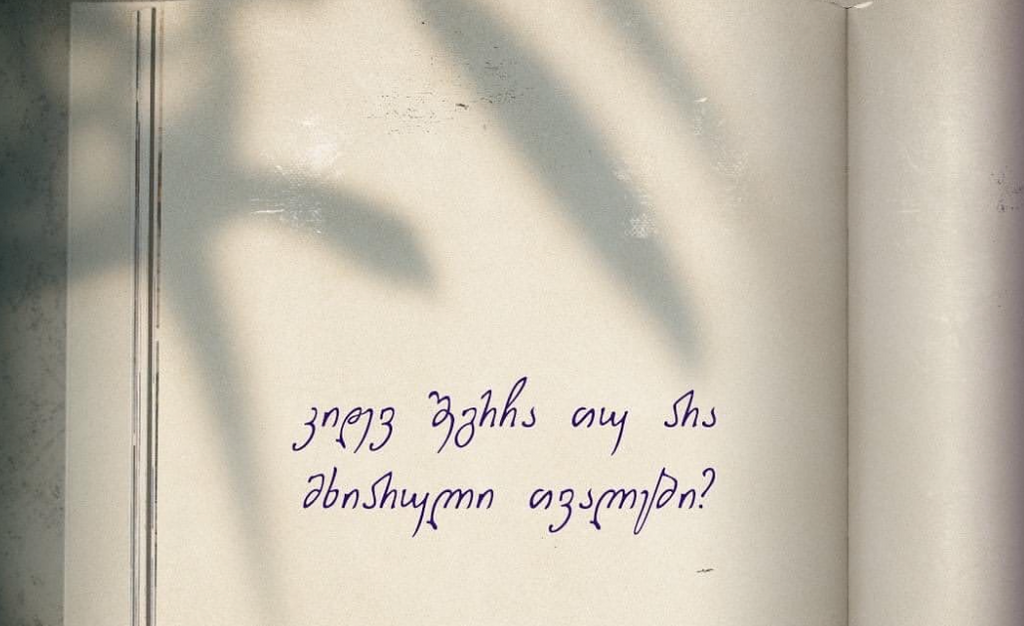 კიდევ შეგრჩა თუ არა
მხიარული თვალები?